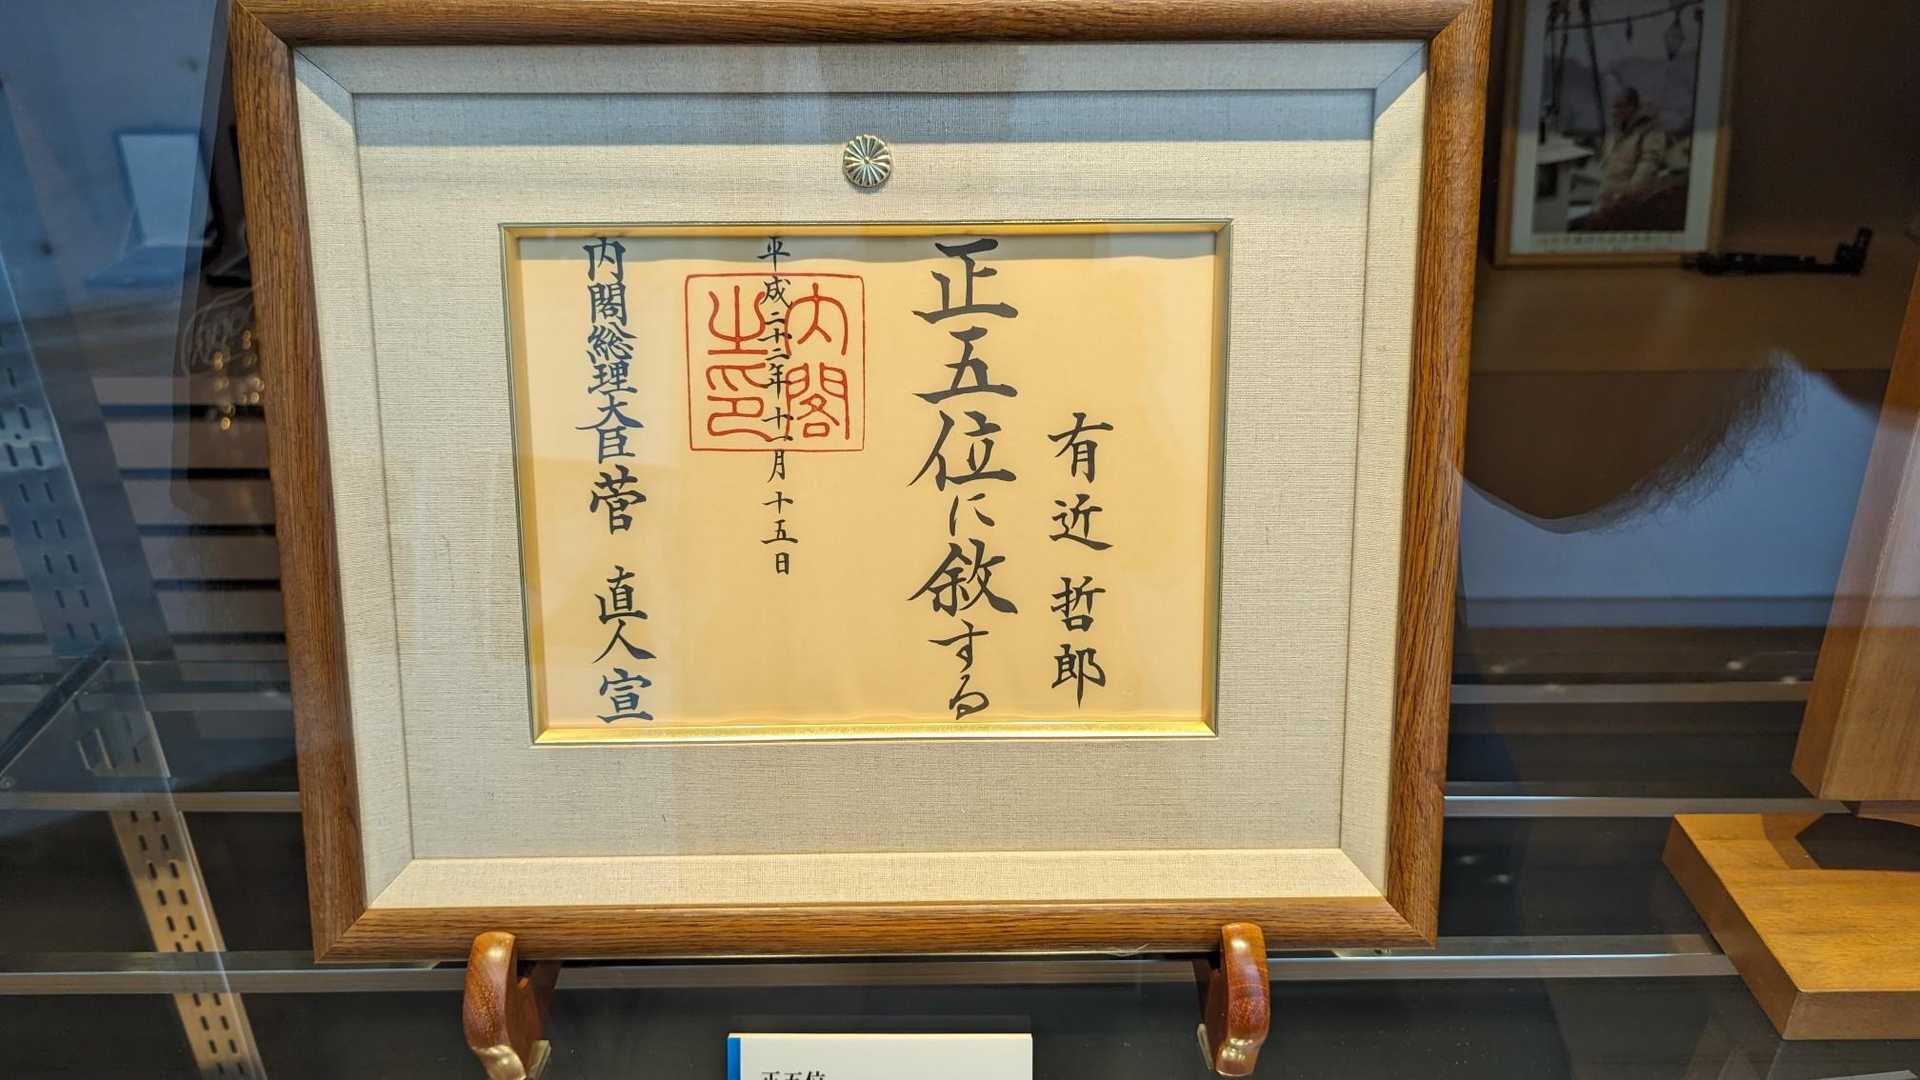 有近 哲郎
正五位に敘する
平成二十二年十一月十五日
内閣之印
内閣総理大臣 菅 直人 宣
正五位